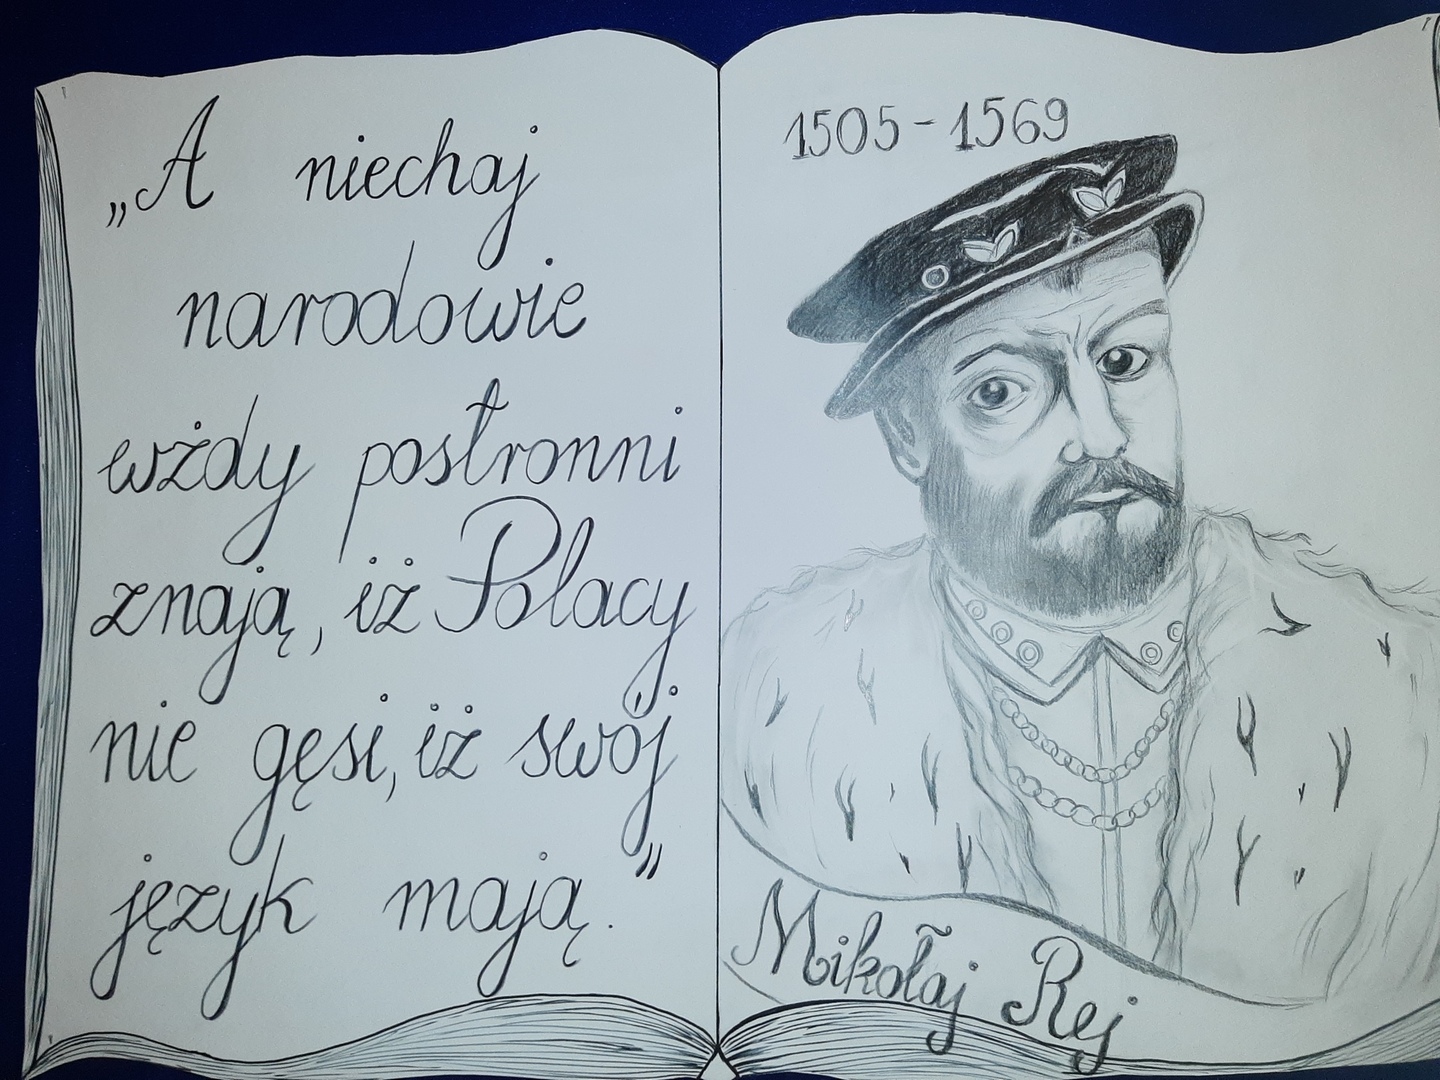 „A niechaj
narodowie
wżdy postronni
znają, iż Polacy
nie gęsi, iż swój
język mają.”
1505-1569
Mikołaj Rej